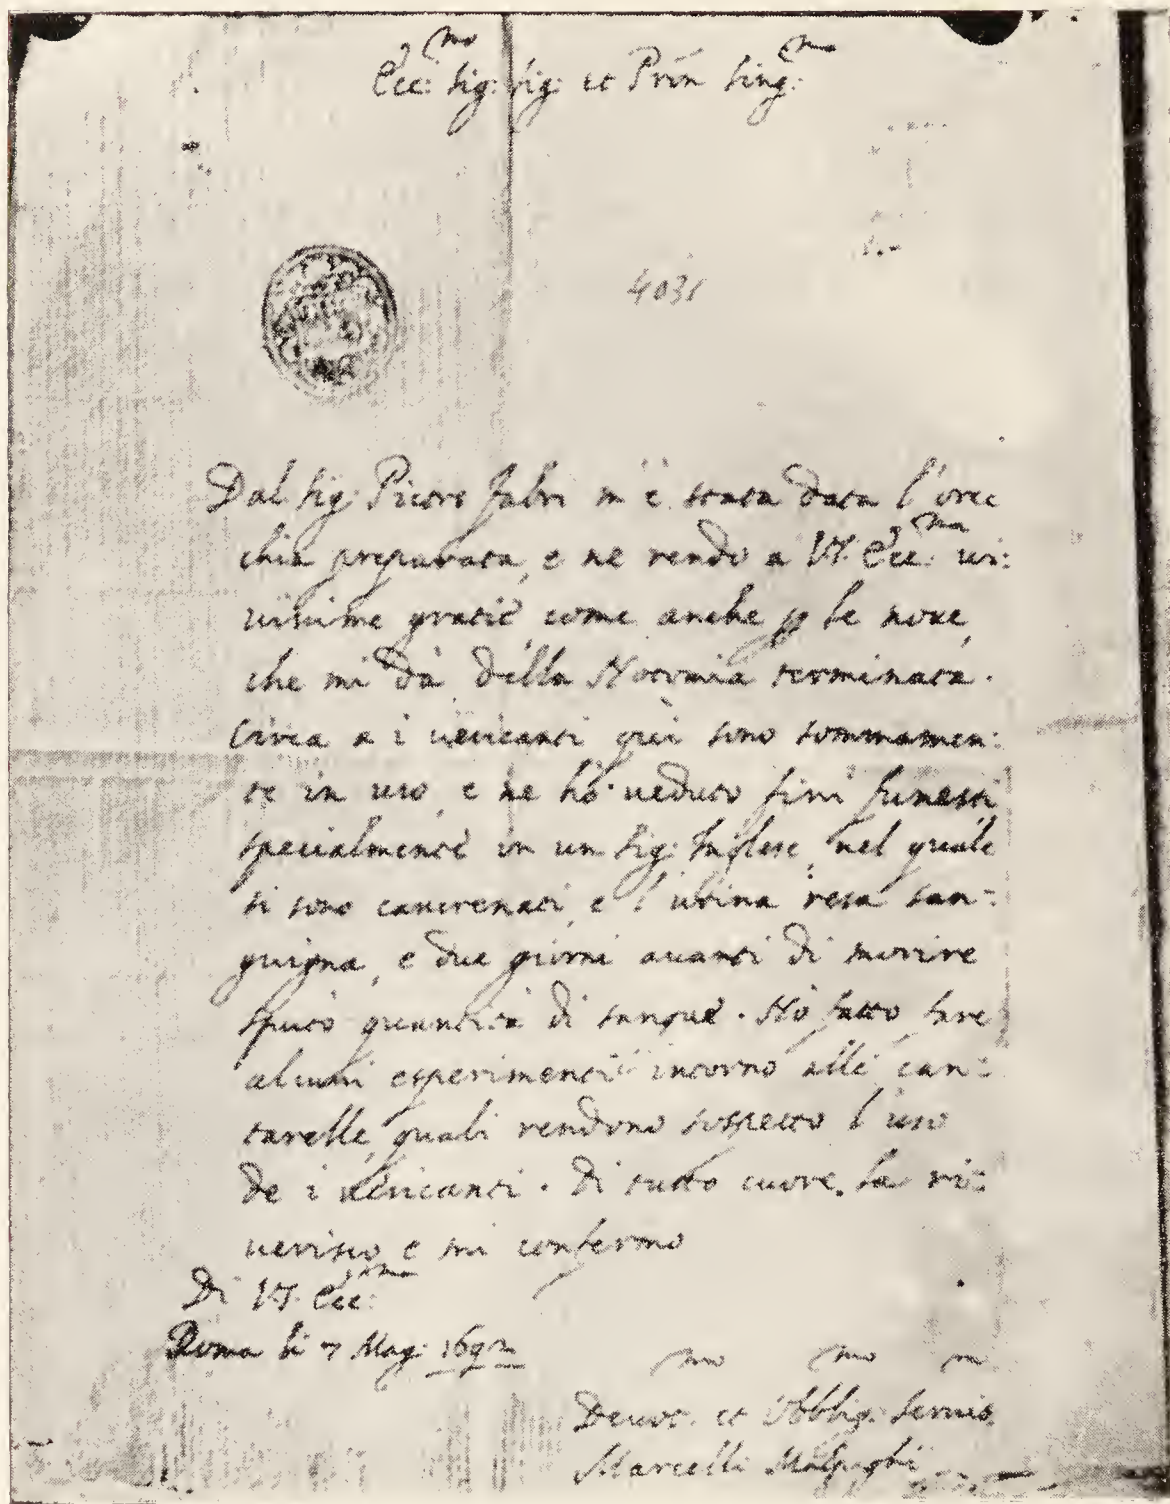 Ecc:mo Sig: Sig: et Prōn Sing:mo
4031
Dal Sig: Pietro Fabri m'è stata data l'orec
chia preparata, e ne rendo a VS. Ecc:ma vi:
uissime gratie, come anche p le noue,
che mi dà della Notomia terminata.
Circa a i uesicanti qui sono sommamen:
te in uso, e ne hò ueduto fini funesti
specialmente in un Sig: Inglese, nel quale
si sono cancrenati, e l'urina resa san:
guigna, e due giorni auanti di morire
sputò quantità di sangue. Hò fatto fare
alcuni esperimenti intorno alle can:
tarelle, quali rendono sospetto l'uso
de i uesicanti. Di tutto cuore la ri:
uerisco, e mi confermo
Di VS. Ecc:ma
Roma li 7 Mag: 1692
Deuot:mo et Obblig:mo Seruit:re
Marcello Malpighi